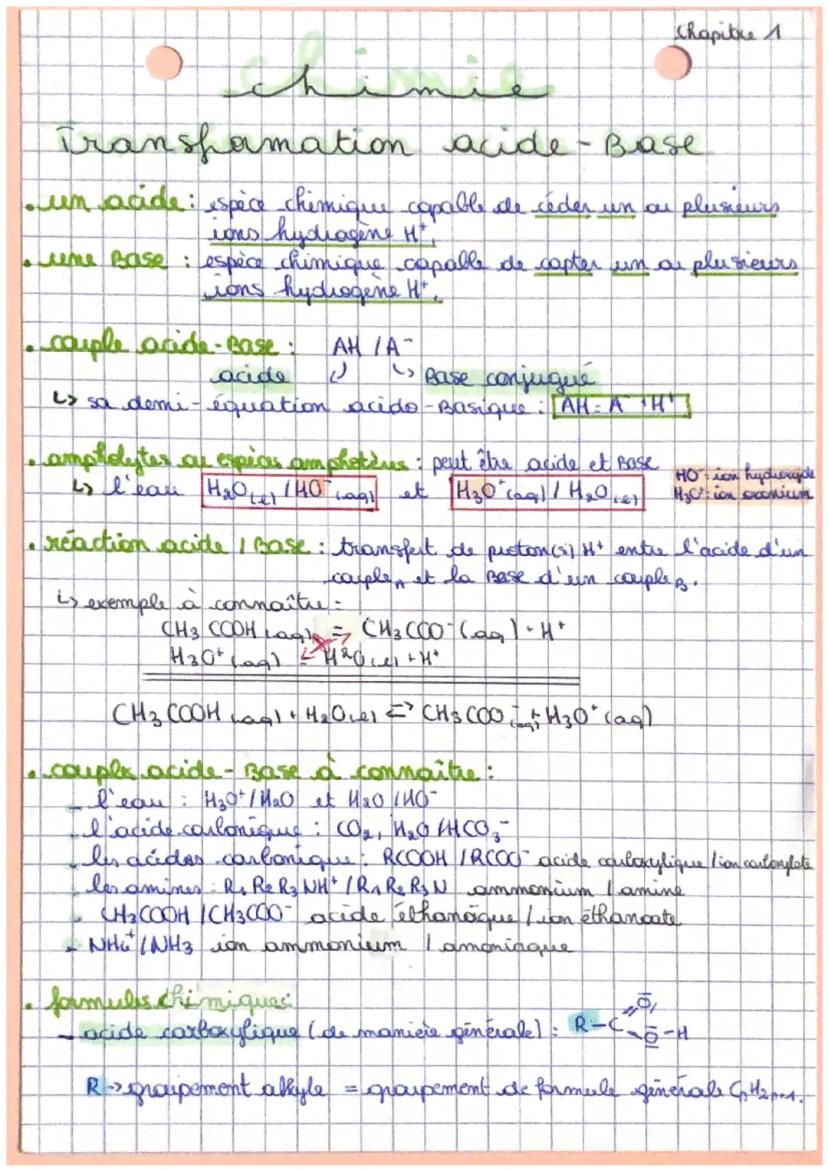 Chapitre 1
chimie
Transformation acide-Base
• un acide : espèce chimique capable de céder un ou plusieurs
ions hydrogène H⁺.
• une Base : espèce chimique capable de capter un ou plusieurs
ions hydrogène H⁺.
• couple acide-Base : AH / A⁻
acide Base conjugué
↳ sa demi-équation acido-Basique : AH = A⁻ + H⁺
• ampholytes ou espèces amphotères : peut être acide et Base
↳ l'eau H₂O(l) / HO⁻(aq) et H₃O⁺(aq) / H₂O(l)
HO⁻ : ion hydroxyde
H₃O⁺ : ion oxonium
• réaction acide / Base : transfert de proton(s) H⁺ entre l'acide d'un
couple A et la Base d'un couple B.
↳ exemple à connaître :
CH₃COOH (aq) = CH₃COO⁻ (aq) + H⁺
H₃O⁺ (aq) = H₂O (l) + H⁺
CH₃COOH (aq) + H₂O(l) ⇌ CH₃COO⁻(aq) + H₃O⁺ (aq)
• couples acide-Base à connaître :
- l'eau : H₃O⁺/H₂O et H₂O/HO⁻
- l'acide carbonique : CO₂, H₂O/HCO₃⁻
- les acides carbonique : RCOOH / RCOO⁻ acide carboxylique / ion carboxylate
- les amines : R₁R₂R₃NH⁺ / R₁R₂R₃N ammonium / amine
- CH₃COOH / CH₃COO⁻ acide éthanoïque / ion éthanoate
- NH₄⁺ / NH₃ ion ammonium / amoniaque
• formules chimiques :
- acide carboxylique (de manière générale) : R-C O O-H
R → groupement alkyle = groupement de formule générale CₙH₂ₙ₊₁.